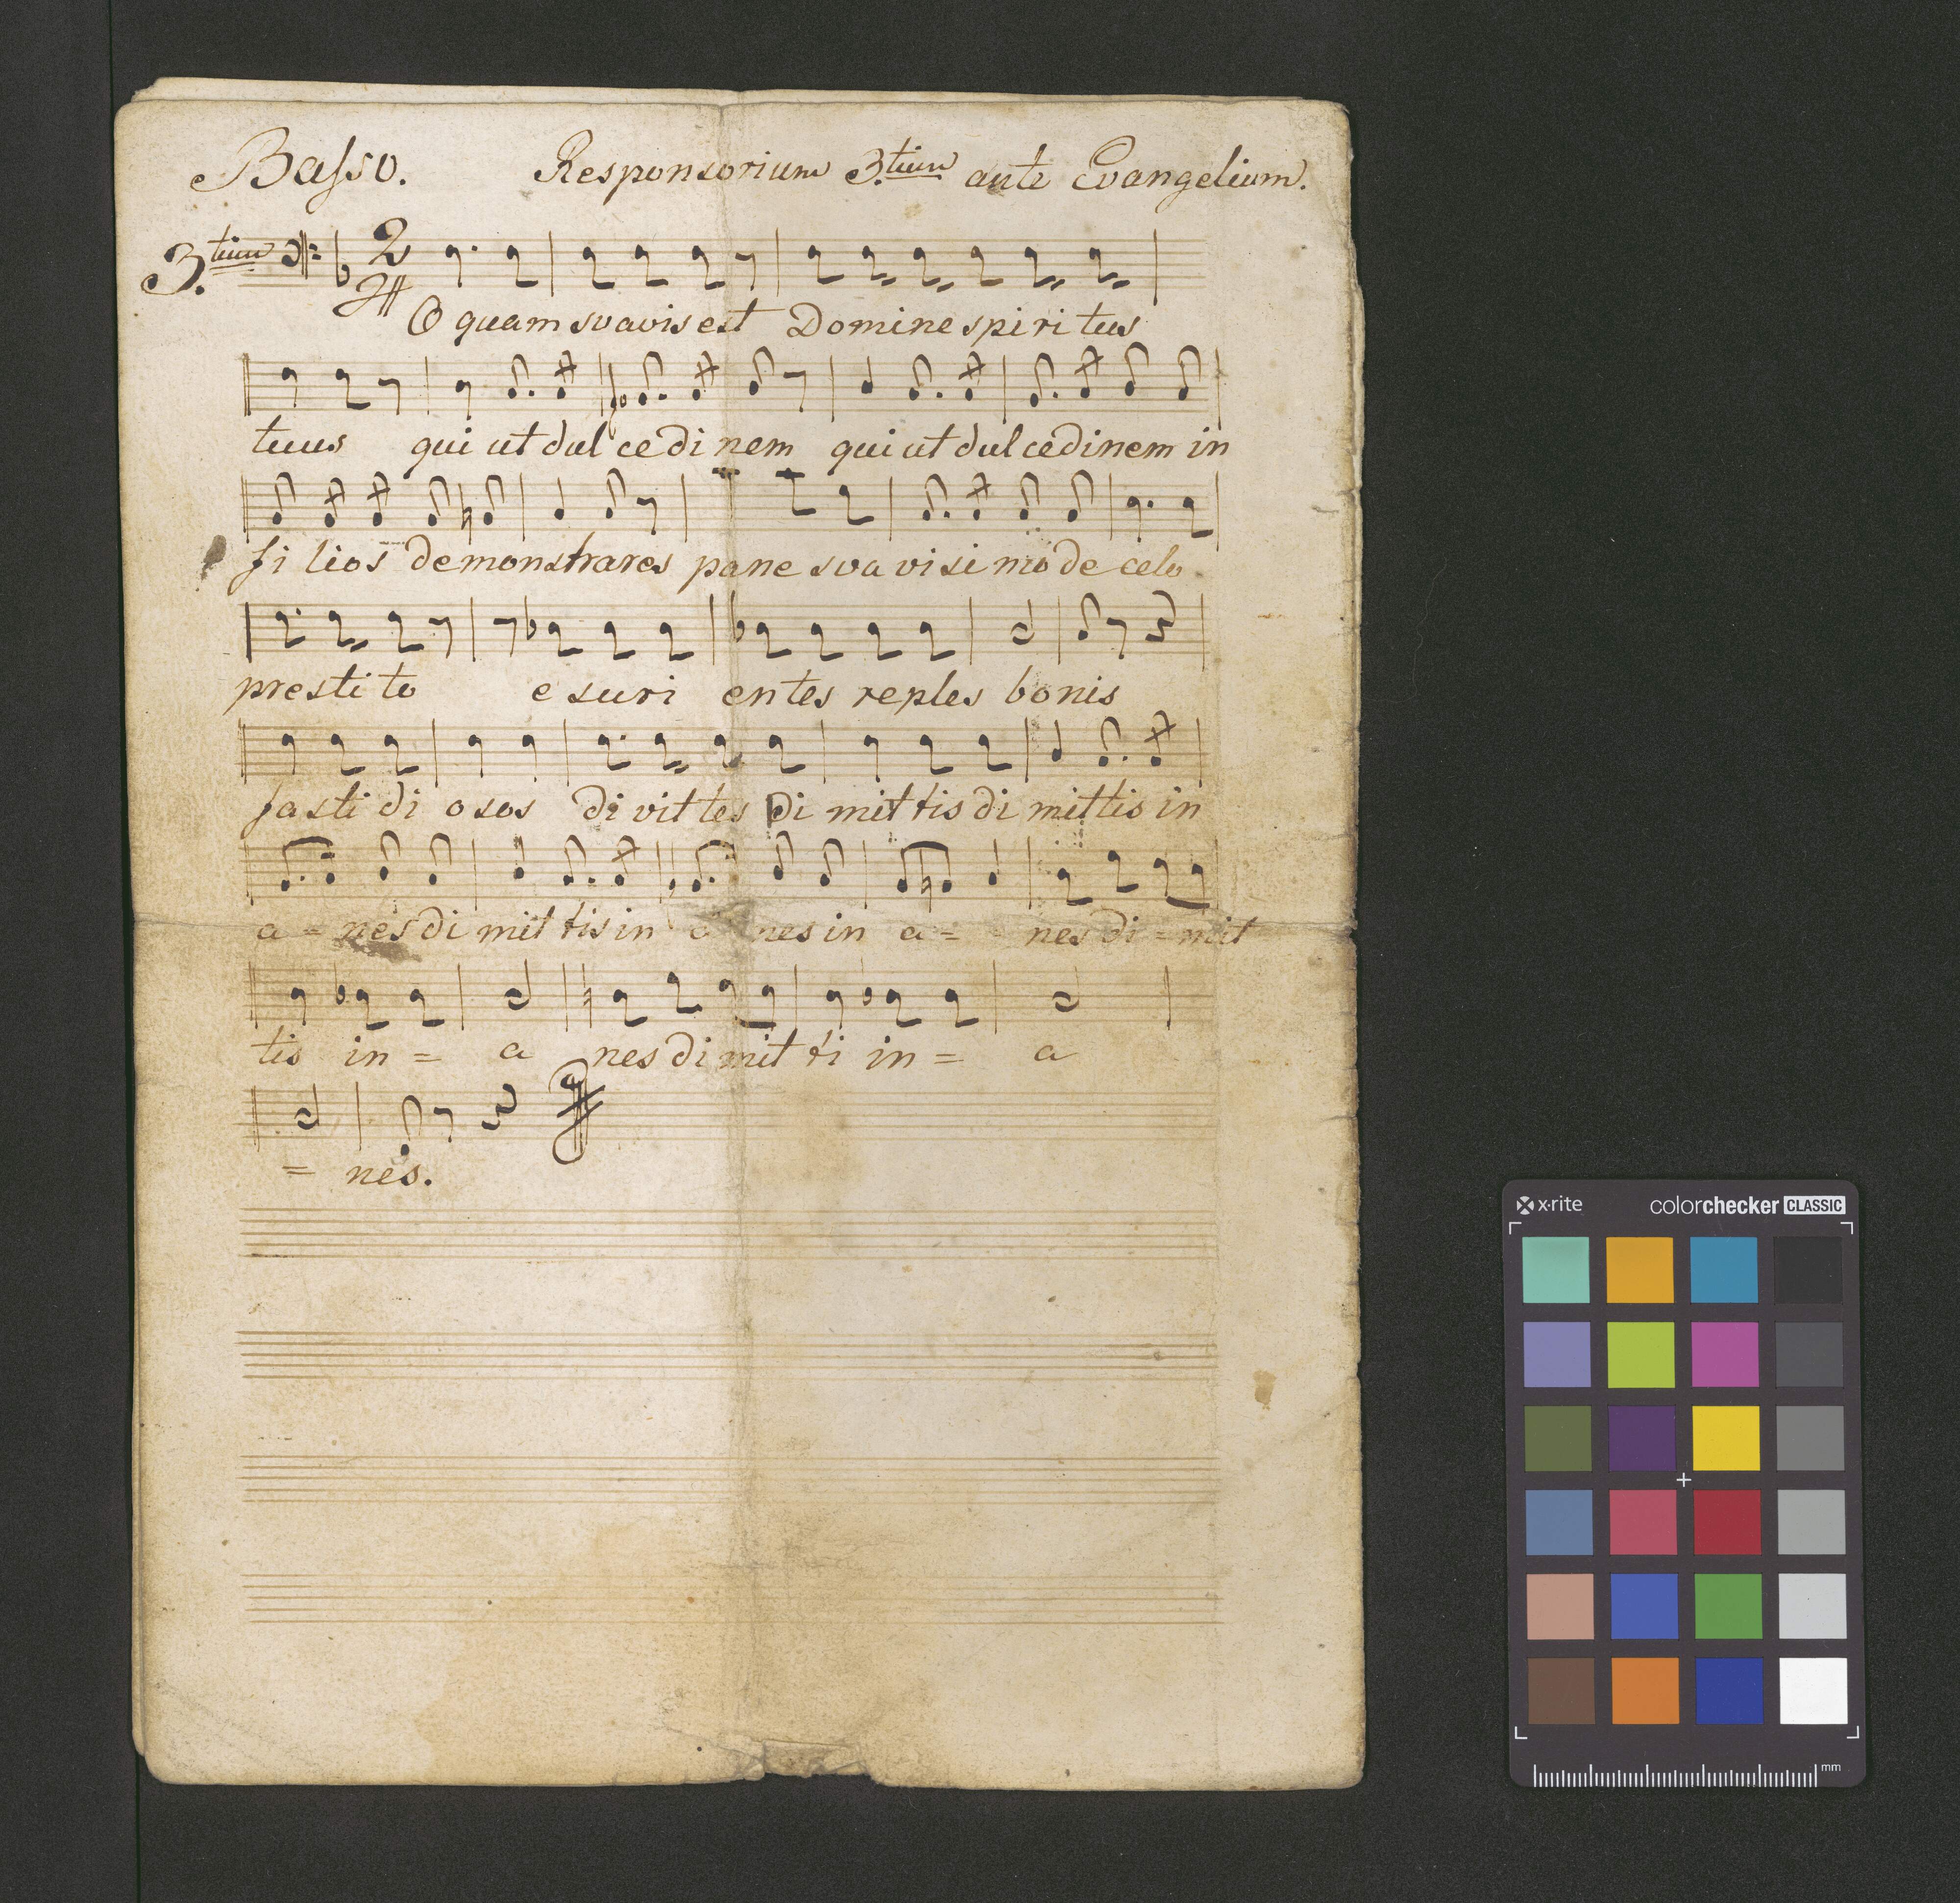 Basso. Responsorium 3.tium ante Evangelium.
3.tium 2
O quam svavis est Domine spiritus
tuus qui ut dul ce di nem qui ut dul cedinem in
fi lios demonstrares pane sva vi si mo de celo
prestito e suri entes reples bonis
fasti di osos di vit tes di mit tis di mittis in
a = nes di mit tis in a nes in a = nes di = mit
tis in = a nes di mit ti in = a
= nes.
x·rite colorchecker CLASSIC
mm